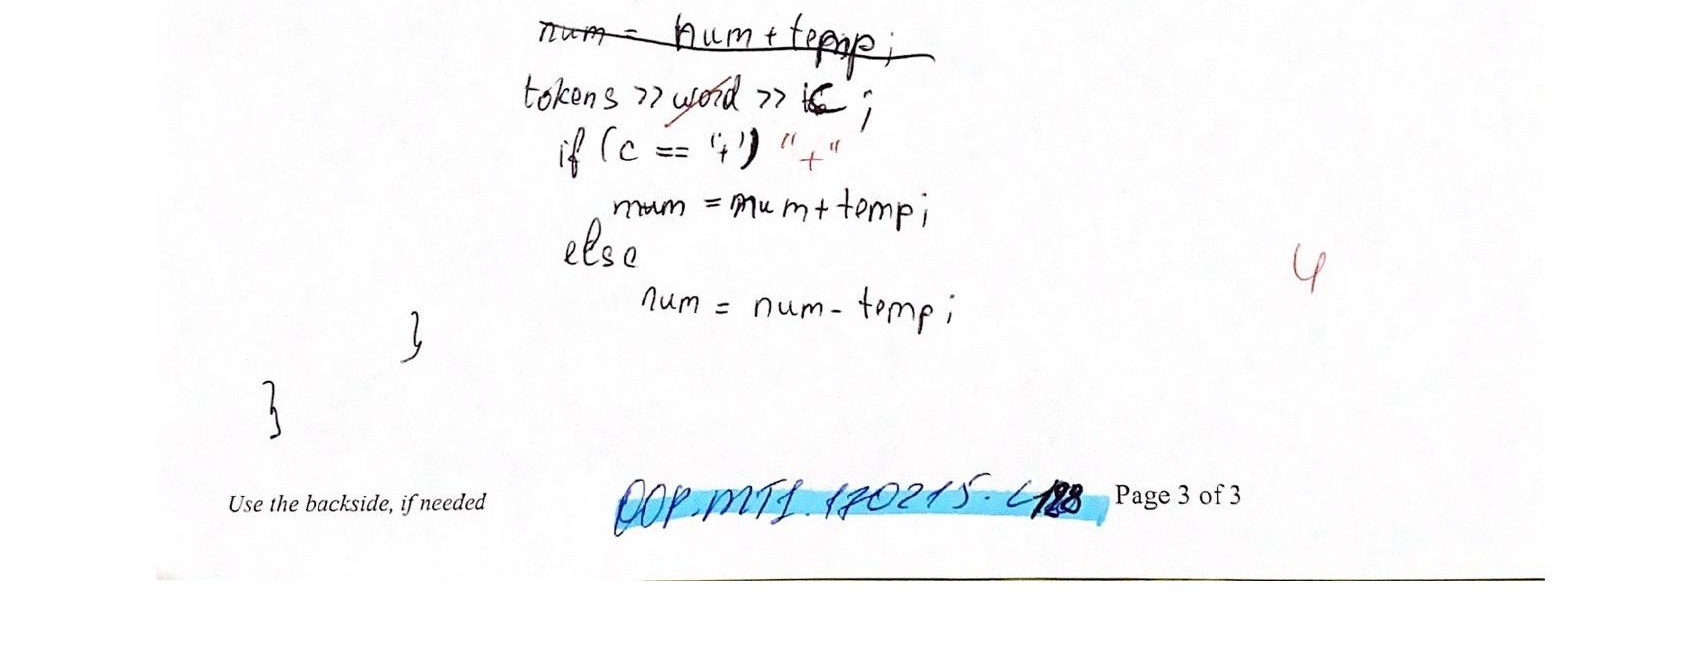 num = num + temp;
tokens >> word >> c ;
if (c == '+') "+"
num = num + temp;
else
num = num - temp;
4
}
}
Use the backside, if needed OOP.MT1.170215. Page 3 of 3